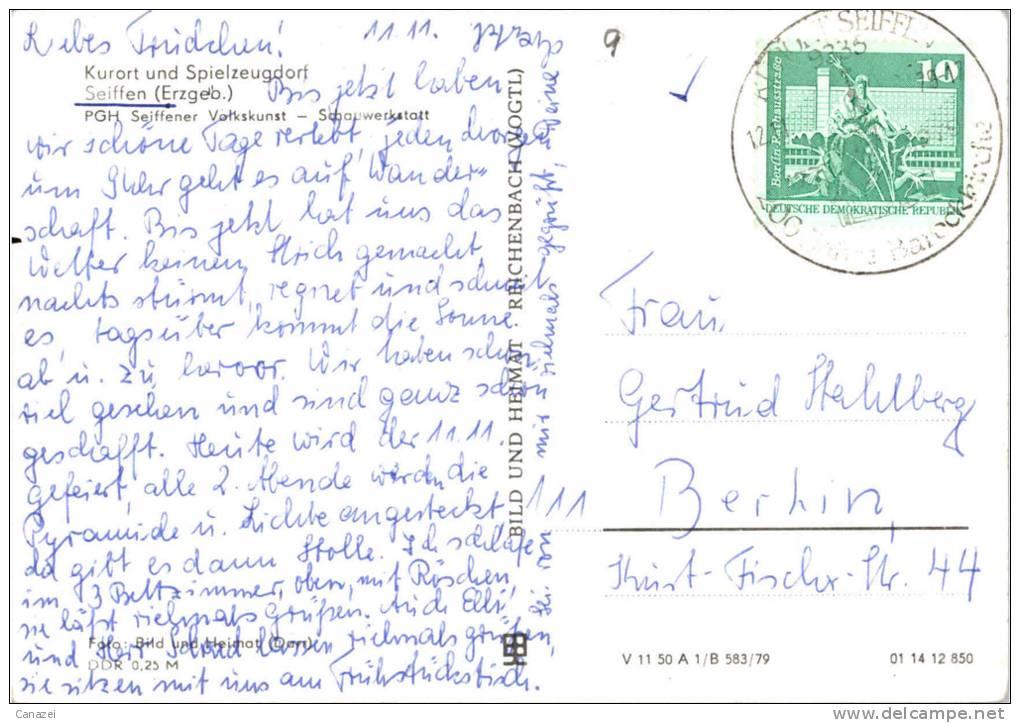 Liebes Trudchen! 11.11.
Kurort und Spielzeugdorf
Seiffen (Erzgeb.)
Bis jetzt haben
PGH Seiffener Volkskunst – Schauwerkstatt
wir schöne Tage verlebt, jeden Morgen
um Uhr geht es auf Wander=
schaft. Bis jetzt hat uns das
Wetter keinen Strich gemacht,
nachts stürmt, regnet und schneit
es, tagsüber kommt die Sonne
ab u. zu hervor. Wir haben schon
viel gesehen und sind ganz schön
geschafft. Heute wird der 11.11.
gefeiert, alle 2. Abende werden die
Pyramide u. Lichte angesteckt,
da gibt es dann Stolle. Ich schlafe
im 3 Bettzimmer, oben, mit Röschen,
sie läßt vielmals Grüßen. Auch Elli
und Herr lassen vielmals grüßen,
Foto: Bild und Heimat (Darr)
DDR 0,25 M
sie sitzen mit uns am Frühstückstisch.
Sei von mir vielmals gegrüßt, Deine
BILD UND HEIMAT REICHENBACH (VOGTL)
9
KURORT SEIFFEN
9335
12.
200 Jahre Barockkirche
10
Berlin-Rathausstraße
DEUTSCHE DEMOKRATISCHE REPUBLIK
Frau
Gertrud Stahlberg
111 Berlin,
Kurt-Fischer-Str. 44
V 11 50 A 1/B 583/79 01 14 12 850
Canazei
http://www.delcampe.net